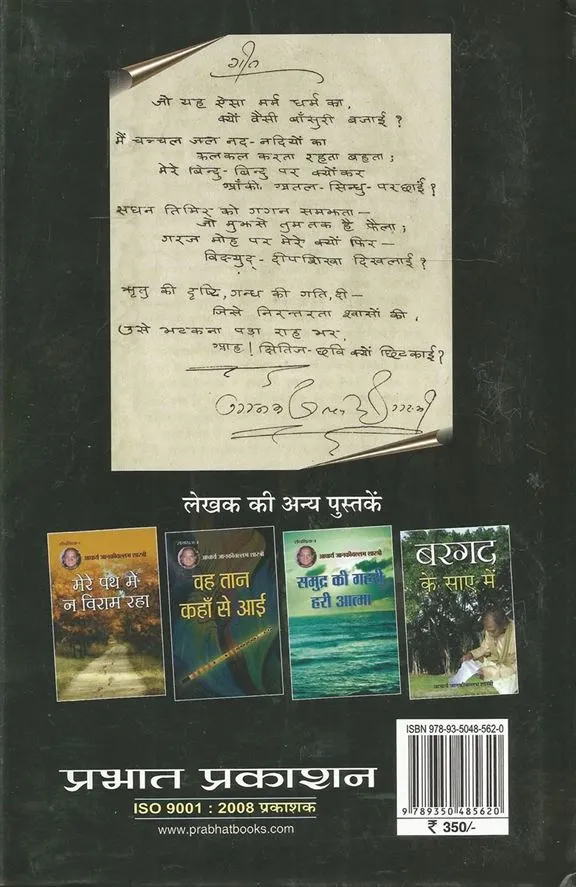 गीत
जो यह ऐसा मर्म धर्म का,
क्यों वैसी बाँसुरी बजाई ?
मैं चञ्चल जल नद-नदियों का
कलकल करता रहता बहता;
मेरे बिन्दु-बिन्दु पर क्योंकर
आँकी अतल-सिन्धु-परछाईं ?
सघन तिमिर को गगन समझता—
जो मुझसे तुम तक है फैला;
गरज मोह पर मेरे क्यों फिर—
विद्युद्-दीपशिखा दिखलाई ?
ऋतु की दृष्टि, गन्ध की गति, दी—
जिसे निरन्तरता श्वासों की,
उसे भटकना पड़ा राह भर,
आह! क्षितिज-छवि क्यों छिटकाई?
लेखक की अन्य पुस्तकें
आचार्य जानकीवल्लभ शास्त्री
मेरे पथ में
न विराम रहा
आचार्य जानकीवल्लभ शास्त्री
वह तान
कहाँ से आई
आचार्य जानकीवल्लभ शास्त्री
समुद्र की गहरी
हरी आत्मा
बरगद
के साए में
आचार्य जानकीवल्लभ शास्त्री
प्रभात प्रकाशन
ISO 9001 : 2008 प्रकाशक
www.prabhatbooks.com
ISBN 978-93-5048-562-0
9 789350 485620
₹ 350/-